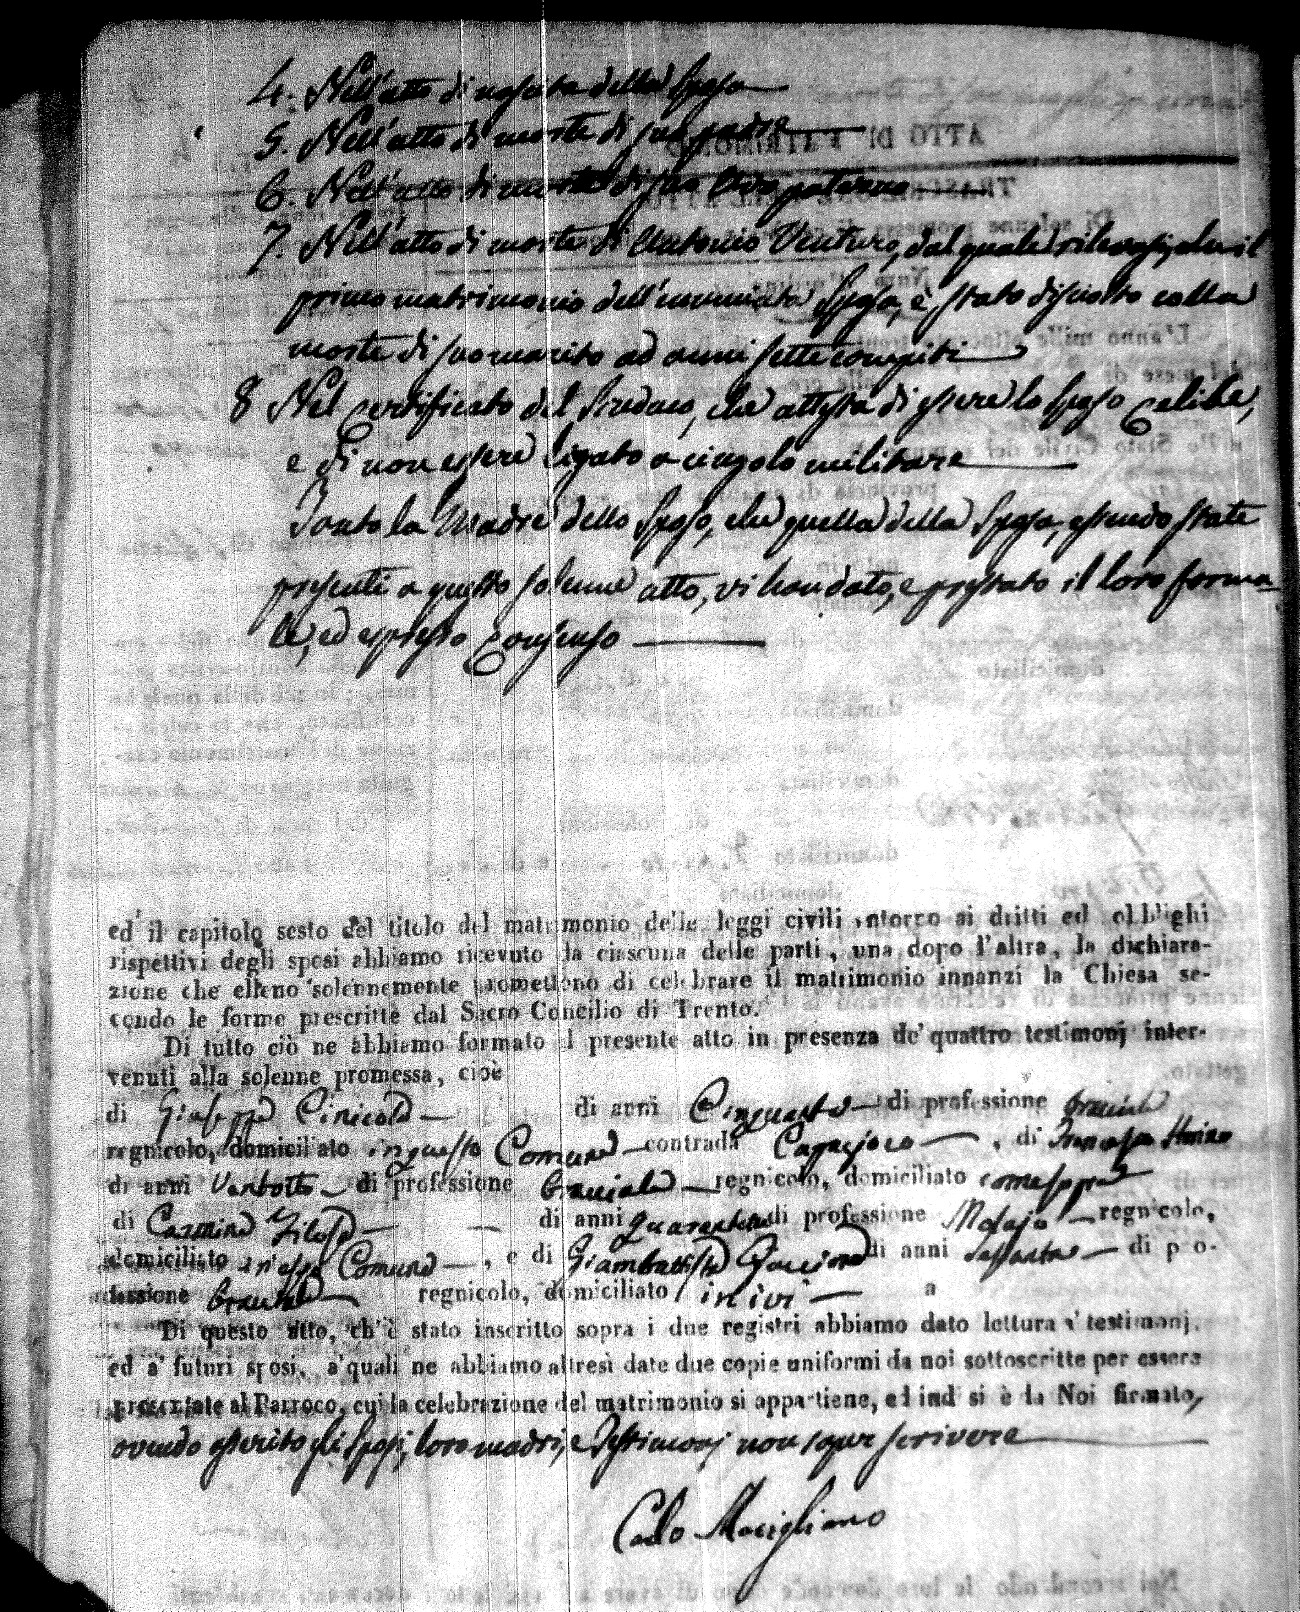 4. Nell'atto di nascita della Sposa
5. Nell'atto di morte di suo padre
6. Nell'atto di morte di suo Avo paterno
7. Nell'atto di morte di Antonio Venturo, dal quale rilevasi, che il
primo matrimonio dell' Sposa, è stato disciolto colla
morte di suo marito ad anni sette compiti
8 Nel Certificato del Sindaco, che attesta di essere lo Sposo Celibe,
e di non essere ligato a cingolo militare
Tanto la Madre dello Sposo, che quella della Sposa, essendo state
presenti a questo solenne atto, vi han dato, e prestato il loro forma-
le, ed espresso Consenso
ed il capitolo sesto del titolo del matrimonio delle leggi civili intorno ai dritti ed obblighi
rispettivi degli sposi abbiamo ricevuto da ciascuna delle parti, una dopo l'altra, la dichiara-
zione che elleno solennemente promettono di celebrare il matrimonio innanzi la Chiesa se-
condo le forme prescritte dal Sacro Concilio di Trento.
Di tutto ciò ne abbiamo formato il presente atto in presenza de' quattro testimonj inter-
venuti alla solenne promessa, cioè
di Giuseppe di anni Cinquanta di professione bracciale
regnicolo, domiciliato in questo Comune contrada , di Francesco
di anni Ventotto di professione bracciale regnicolo, domiciliato come sopra
di Carmine di anni quarantuno di professione regnicolo,
domiciliato in esso Comune , e di Giambattista di anni Sessanta di pro-
fessione bracciale regnicolo, domiciliato in ivi
Di questo atto, ch'è stato inscritto sopra i due registri abbiamo dato lettura a' testimonj,
ed a' futuri sposi, a' quali ne abbiamo altresì date due copie uniformi da noi sottoscritte per essere
presentate al Parroco, cui la celebrazione del matrimonio si appartiene, ed indi si è da Noi firmato,
avendo asserito gli Sposi, loro madri, e Testimonj non saper scrivere
Carlo Macigliano